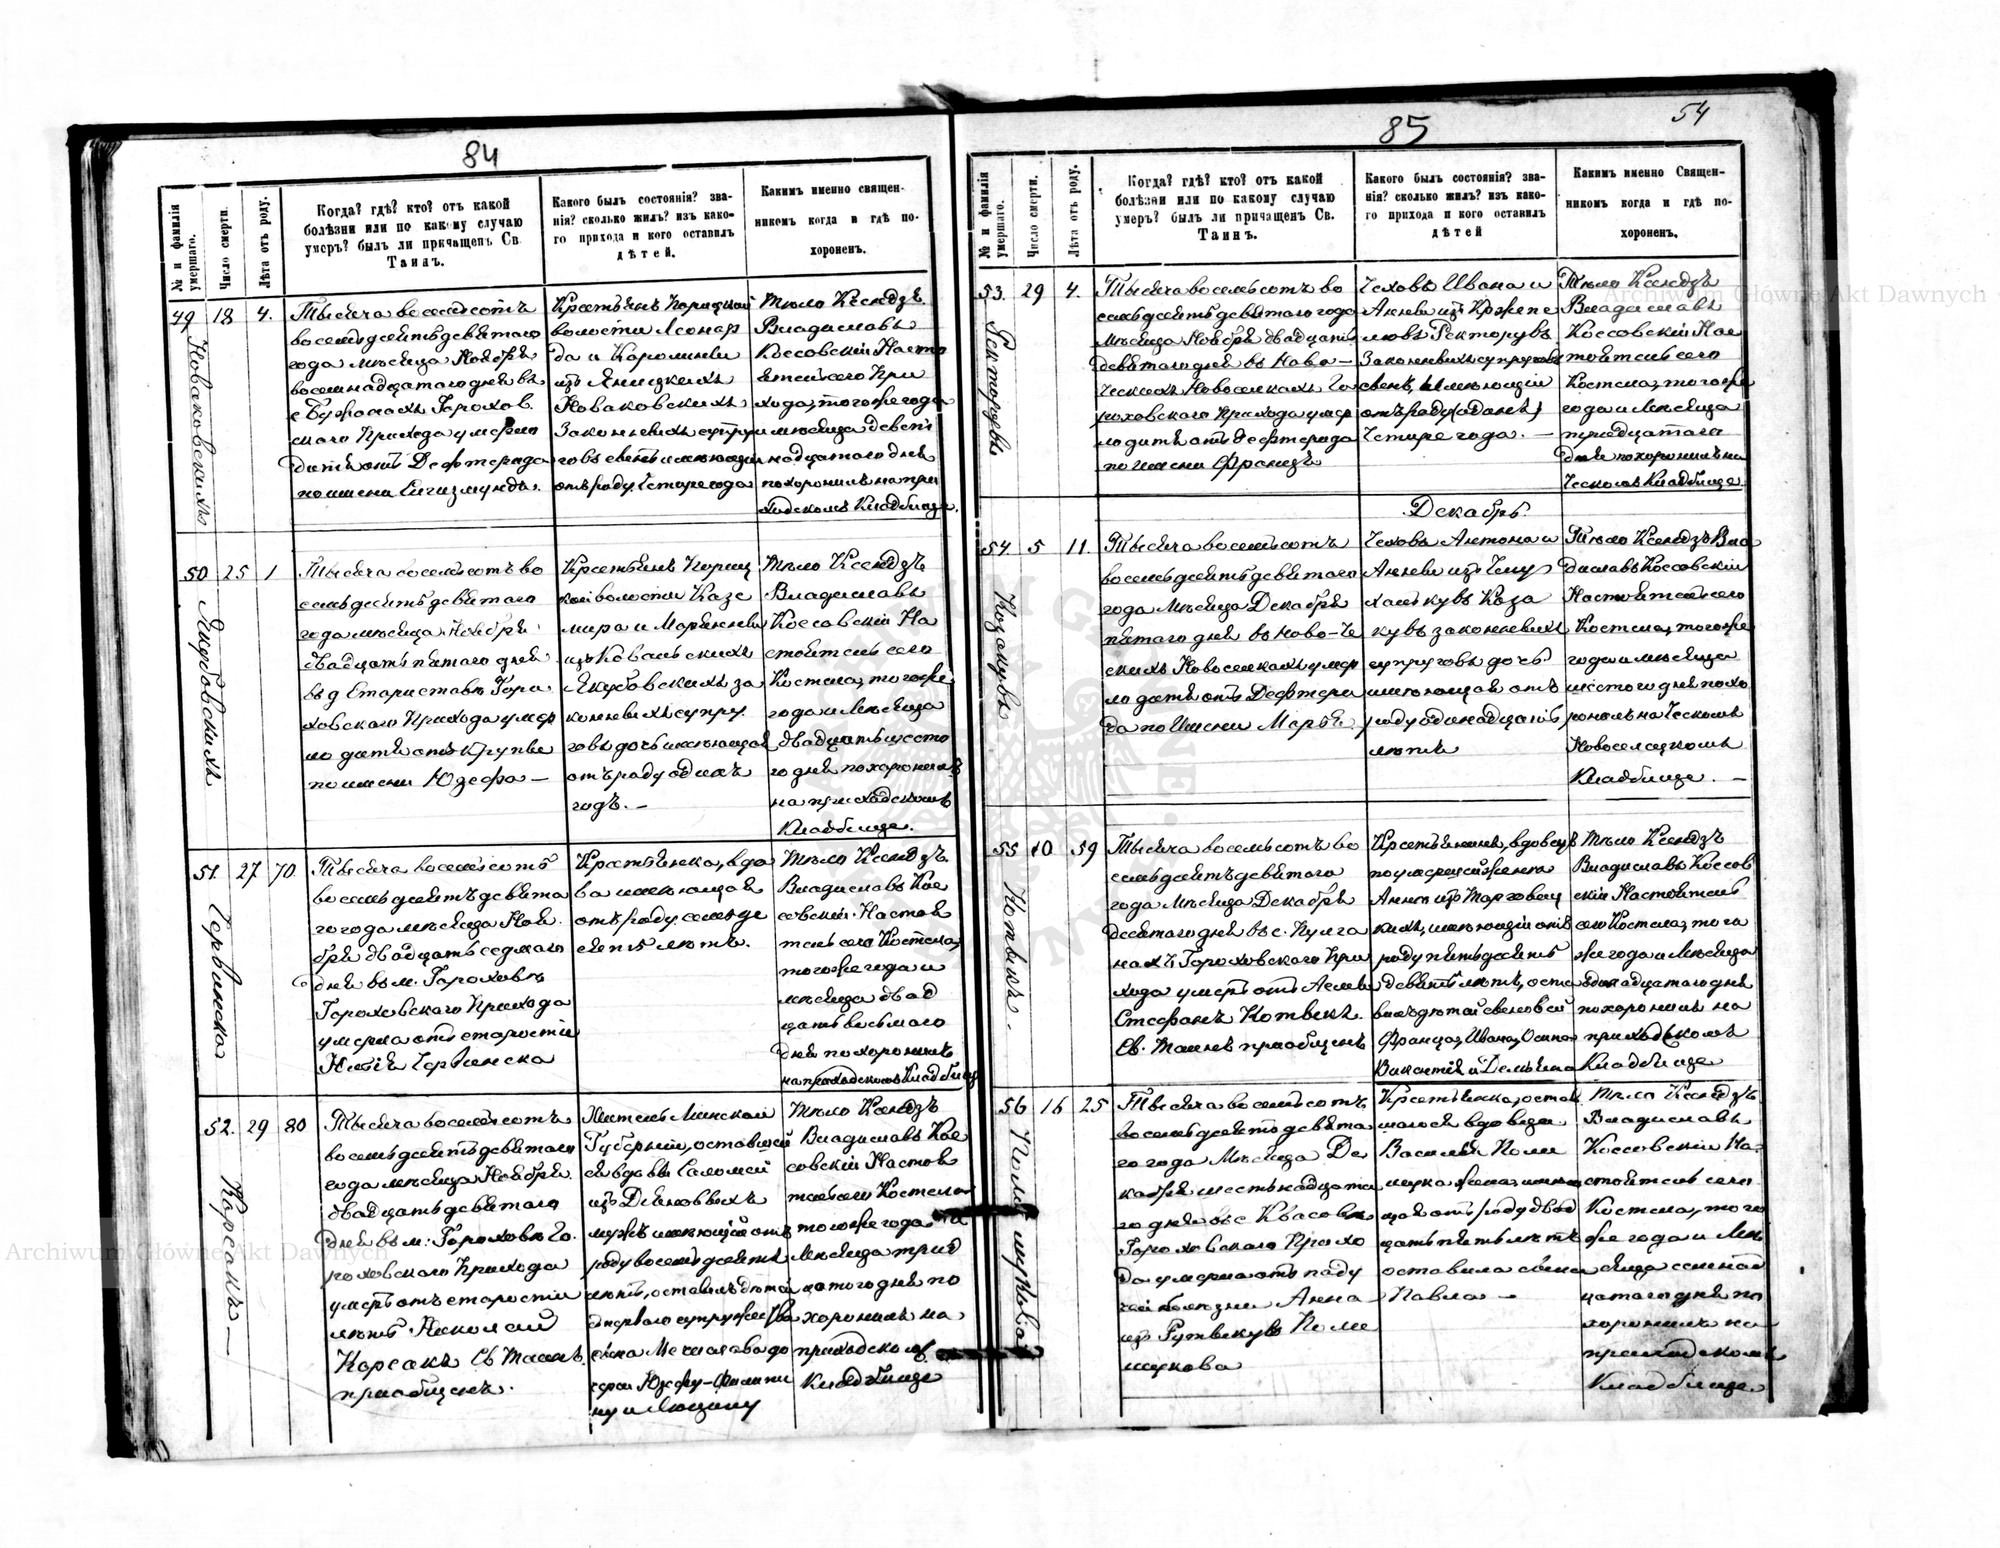 84
№ и фамилія умершаго.
Число смерти.
Лѣта отъ роду.
Когда? гдѣ? кто? отъ какой
болѣзни или по какому случаю
умеръ? былъ ли причащенъ Св.
Таинъ.
Какого былъ состоянія? зва-
нія? сколько жилъ? изъ како-
го прихода и кого оставилъ
дѣтей.
Какимъ именно священ-
никомъ когда и гдѣ по-
хороненъ.
49
Новаковскихъ
18
4.
Тысяча восемьсотъ
восемьдесятъ девятого
года мѣсяца Ноября
восемнадцатого дня въ
с Бужанахъ Горохов.
ского Прихода умерло
дитя отъ Дефтерида
по имени Сигизмундъ.
Крестьянъ Порицкой
волости Леонар
да и Каролины
изъ Яницкихъ
Новаковскихъ
Законныхъ супру
говъ сынъ имеющій
отъ роду Четыре года
Тѣло Ксендзъ
Владиславъ
Коссовскій Насто
ятель сего При
хода, того же года
и мѣсяца девят
надцатого дня
похоронилъ на при
ходскомъ Кладбище.
50
Якубовскихъ
25
1
Тысяча восемьсотъ во
семьдесятъ девятого
года мѣсяца Ноября
двадцать пятого дня
въ д Стариставъ Горо
ховского Прихода умер
ло дитя отъ Крупы
по имени Юзефа —
Крестьянъ Пориц
кой волости Кази
мира и Марянны
изъ Ковальскихъ
Якубовскихъ за
конныхъ супру.
говъ дочь имеющая
отъ роду одинъ
годъ. —
Тѣло Ксендзъ
Владиславъ
Коссовскій На
стоятель сего
Костела, того же
года и мѣсяца
двадцать шесто
го дня похоронилъ
на приходскомъ
Кладбище.
51.
Червинска
27
70
Тысяча восемьсотъ
восемьдесятъ девято
го года мѣсяца Ноя
бря двадцать седмого
дня въ м. Горохов
Гороховского Прихода
умерла отъ старости
Червинска
Крестьянка, вдо
ва имеющая
отъ роду семьде
сятъ лѣтъ.
Тѣло Ксендзъ
Владиславъ Кос
совскій Настоя
тель сего Костела,
того же года и
мѣсяца двад
цать восьмого
дня похоронилъ
на приходскомъ Кладбище
52.
Корсакъ —
29
80
Тысяча восемьсотъ
восемьдесятъ девятого
года мѣсяца Ноября
двадцать девятого
дня въ м. Гороховъ Го.
роховского Прихода
умеръ отъ старости
лѣтъ Николай
Корсакъ Св Таинъ
приобщенъ.
Житель Минской
Губерніи, оставшей
ся вдовы Саломеи
изъ
мужъ имеющій отъ
роду восемьдесятъ
лѣтъ, оставилъ дѣтей
съ первого супружества
сына Мечислава до
чери Юзефу-Филипи
ну и Люцину
Тѣло Ксендзъ
Владиславъ Кос
совскій Настоя
тель сего Костела
того же года и
Мѣсяца трид
цатого дня по
хоронилъ на
приходскомъ
Кладбище
85
54
№ и фамилія умершаго.
Число смерти.
Лѣта отъ роду.
Когда? гдѣ? кто? отъ какой
болѣзни или по какому случаю
умеръ? былъ ли причащенъ Св.
Таинъ.
Какого былъ состоянія? зва-
нія? сколько жилъ? изъ како-
го прихода и кого оставилъ
дѣтей
Какимъ именно Священ-
никомъ когда и гдѣ по-
хороненъ.
53.
Ректорувъ
29
4.
Тысяча восемьсотъ во
семьдесятъ девятого года
Мѣсяца Ноября двадцать
девятого дня въ Ново —
Ческихъ Новоселкахъ Го
роховского Прихода умер
ло дитя отъ Дефтерида
по имени Францъ
Чеховъ Ивана и
Анны изъ
Ректорувъ
Законныхъ супруговъ
сынъ, имеющій
отъ роду (одинъ)
Четыре года. —
Тѣло Ксендзъ
Владиславъ
Коссовскій Нас
тоятель сего
Костела, того же
года и Мѣсяца
тридцатого
дня похоронилъ на
Ческомъ Кладбище.
Декабрь.
54.
Козакувъ
5
11.
Тысяча восемьсотъ
восемьдесятъ девятого
года Мѣсяца Декабря
пятого дня въ Ново-Че
скихъ Новоселкахъ умер
ло дитя отъ Дефтери
да по Имени Марья.
Чеховъ Антона и
Анны изъ
Коза
кувъ законныхъ
супруговъ дочь
имеющая отъ
роду одинадцать
лѣтъ
Тѣло Ксендзъ Вла
диславъ Коссовскій
Настоятель сего
Костела, того же
года и мѣсяца
шестого дня похо
ронилъ на Ческомъ
Новоселецкомъ
Кладбище. —
55
Котыкъ.
10
59
Тысяча восемьсотъ во
семьдесятъ девятого
года Мѣсяца Декабря
десятого дня въ с.
Гороховского При
хода умеръ отъ Астмы
Стефанъ Котвекъ.
Св. Таинъ приобщенъ
Крестьянинъ, вдовецъ
по умершей жены
Анны изъ Торговец
кихъ, имеющій отъ
роду пятьдесятъ
девять лѣтъ, оста
вилъ дѣтей сыновей
Франца, Ивана, Осипа
Викентія и Демьяна
Тѣло Ксендзъ
Владиславъ Коссов
скій Настоятель
сего Костела, того
же года и Мѣсяца
одинадцатого дня
похоронилъ на
приходскомъ
Кладбище
56
Полищукова
16
25
Тысяча восемьсотъ
восемьдесятъ девято
го года Мѣсяца Де
кабря шестьнадцато
го дня въ с Квасовъ
Гороховского Прихо
да умерла отъ паду
чей болезни Анна
изъ Полищукова
Крестьянка, остав
шагося вдовцем
Василія Поли
щука жена, имею
щая отъ роду двад
цать пять лѣтъ
оставила сына
Павла —
Тѣло Ксендзъ
Владиславъ
Коссовскій На-
стоятель сего
Костела, того
же года и Мѣ
сяца семнад
цатого дня по
хоронилъ на
приходскомъ
Кладбище.
Archiwum Główne Akt Dawnych
Archiwum Główne Akt Dawnych